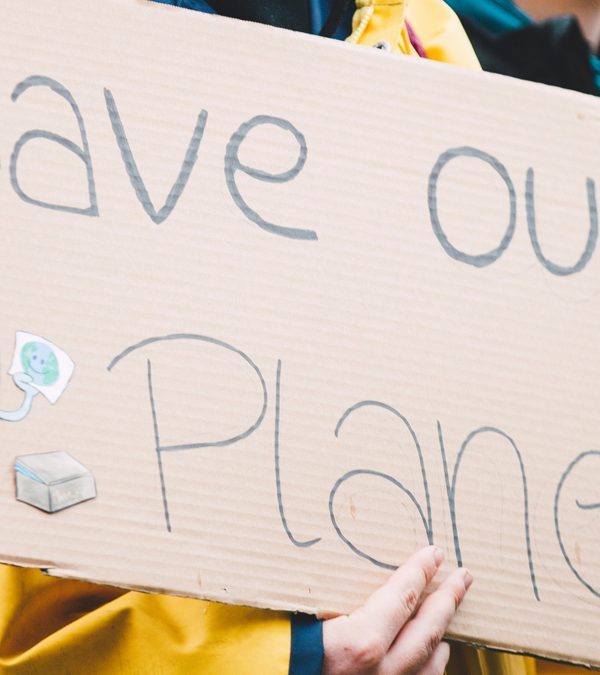 ave ou
Plane